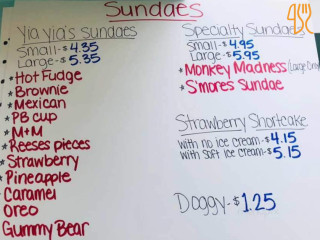 Sundaes
Yia Yia's Sundaes
Small-$4.35
Large-$5.35
*Hot Fudge
*Brownie
*Mexican
*PB cup
*M+M
*Reeses pieces
*Strawberry
*Pineapple
*Caramel
Oreo
Gummy Bear
Specialty Sundaes
Small-$4.95
Large-$5.95
*Monkey Madness (Large Only)
*S'mores Sundae
Strawberry Shortcake
with no ice cream-$4.15
with soft ice cream-$5.15
Doggy-$1.25